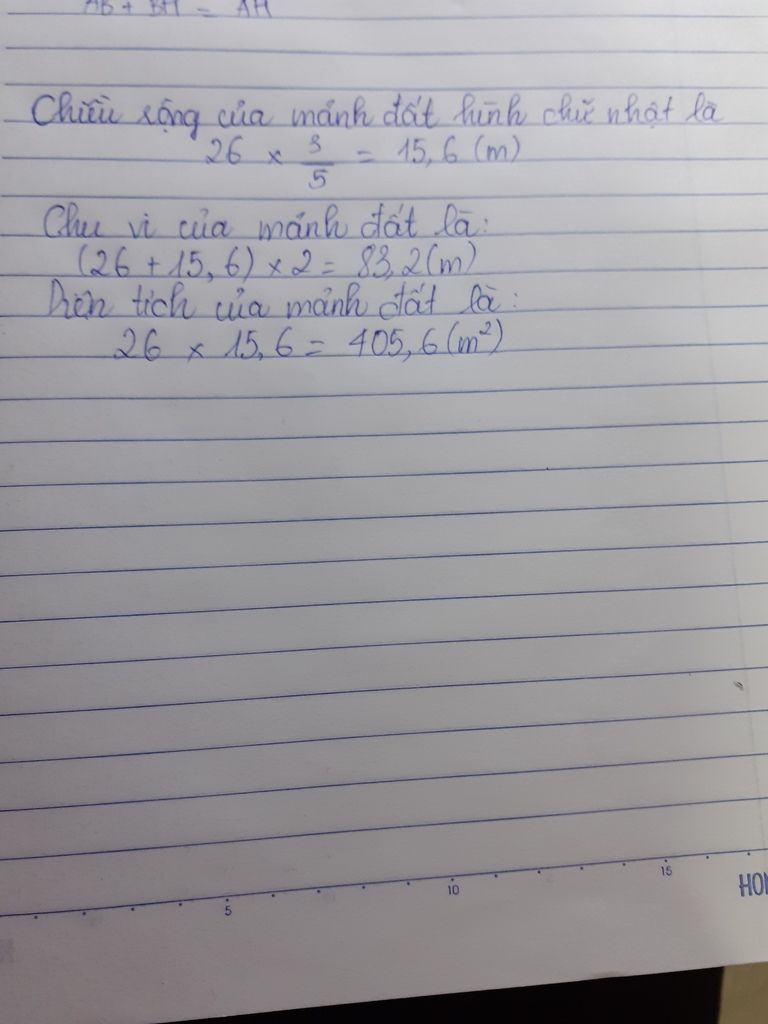 AB + BH = AH
Chiều rộng của mảnh đất hình chữ nhật là
26 × 3/5 = 15,6 (m)
Chu vi của mảnh đất là:
(26 + 15,6) × 2 = 83,2 (m)
Diện tích của mảnh đất là:
26 × 15,6 = 405,6 (m²)
5 10 15